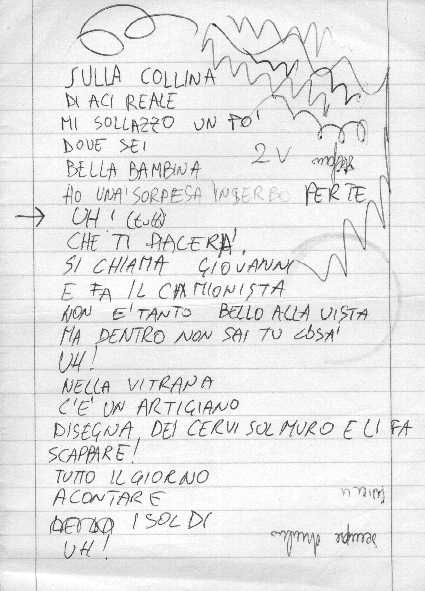 SULLA COLLINA
DI ACI REALE
MI SOLLAZZO UN PO'
DOVE SEI
2V
BELLA BAMBINA
HO UNA SORPESA IN SERBO PER TE
→ UH! (tutti)
CHE TI PIACERA'
SI CHIAMA GIOVANNI
E FA IL CAMIONISTA
NON E' TANTO BELLO ALLA VISTA
MA DENTRO NON SAI TU COSA'
UH!
NELLA VITRANA
C'E' UN ARTIGIANO
DISEGNA DEI CERVI SOL MURO E LI FA
SCAPPARE!
TUTTO IL GIORNO
A CONTARE
I SOLDI
UH!
sempre